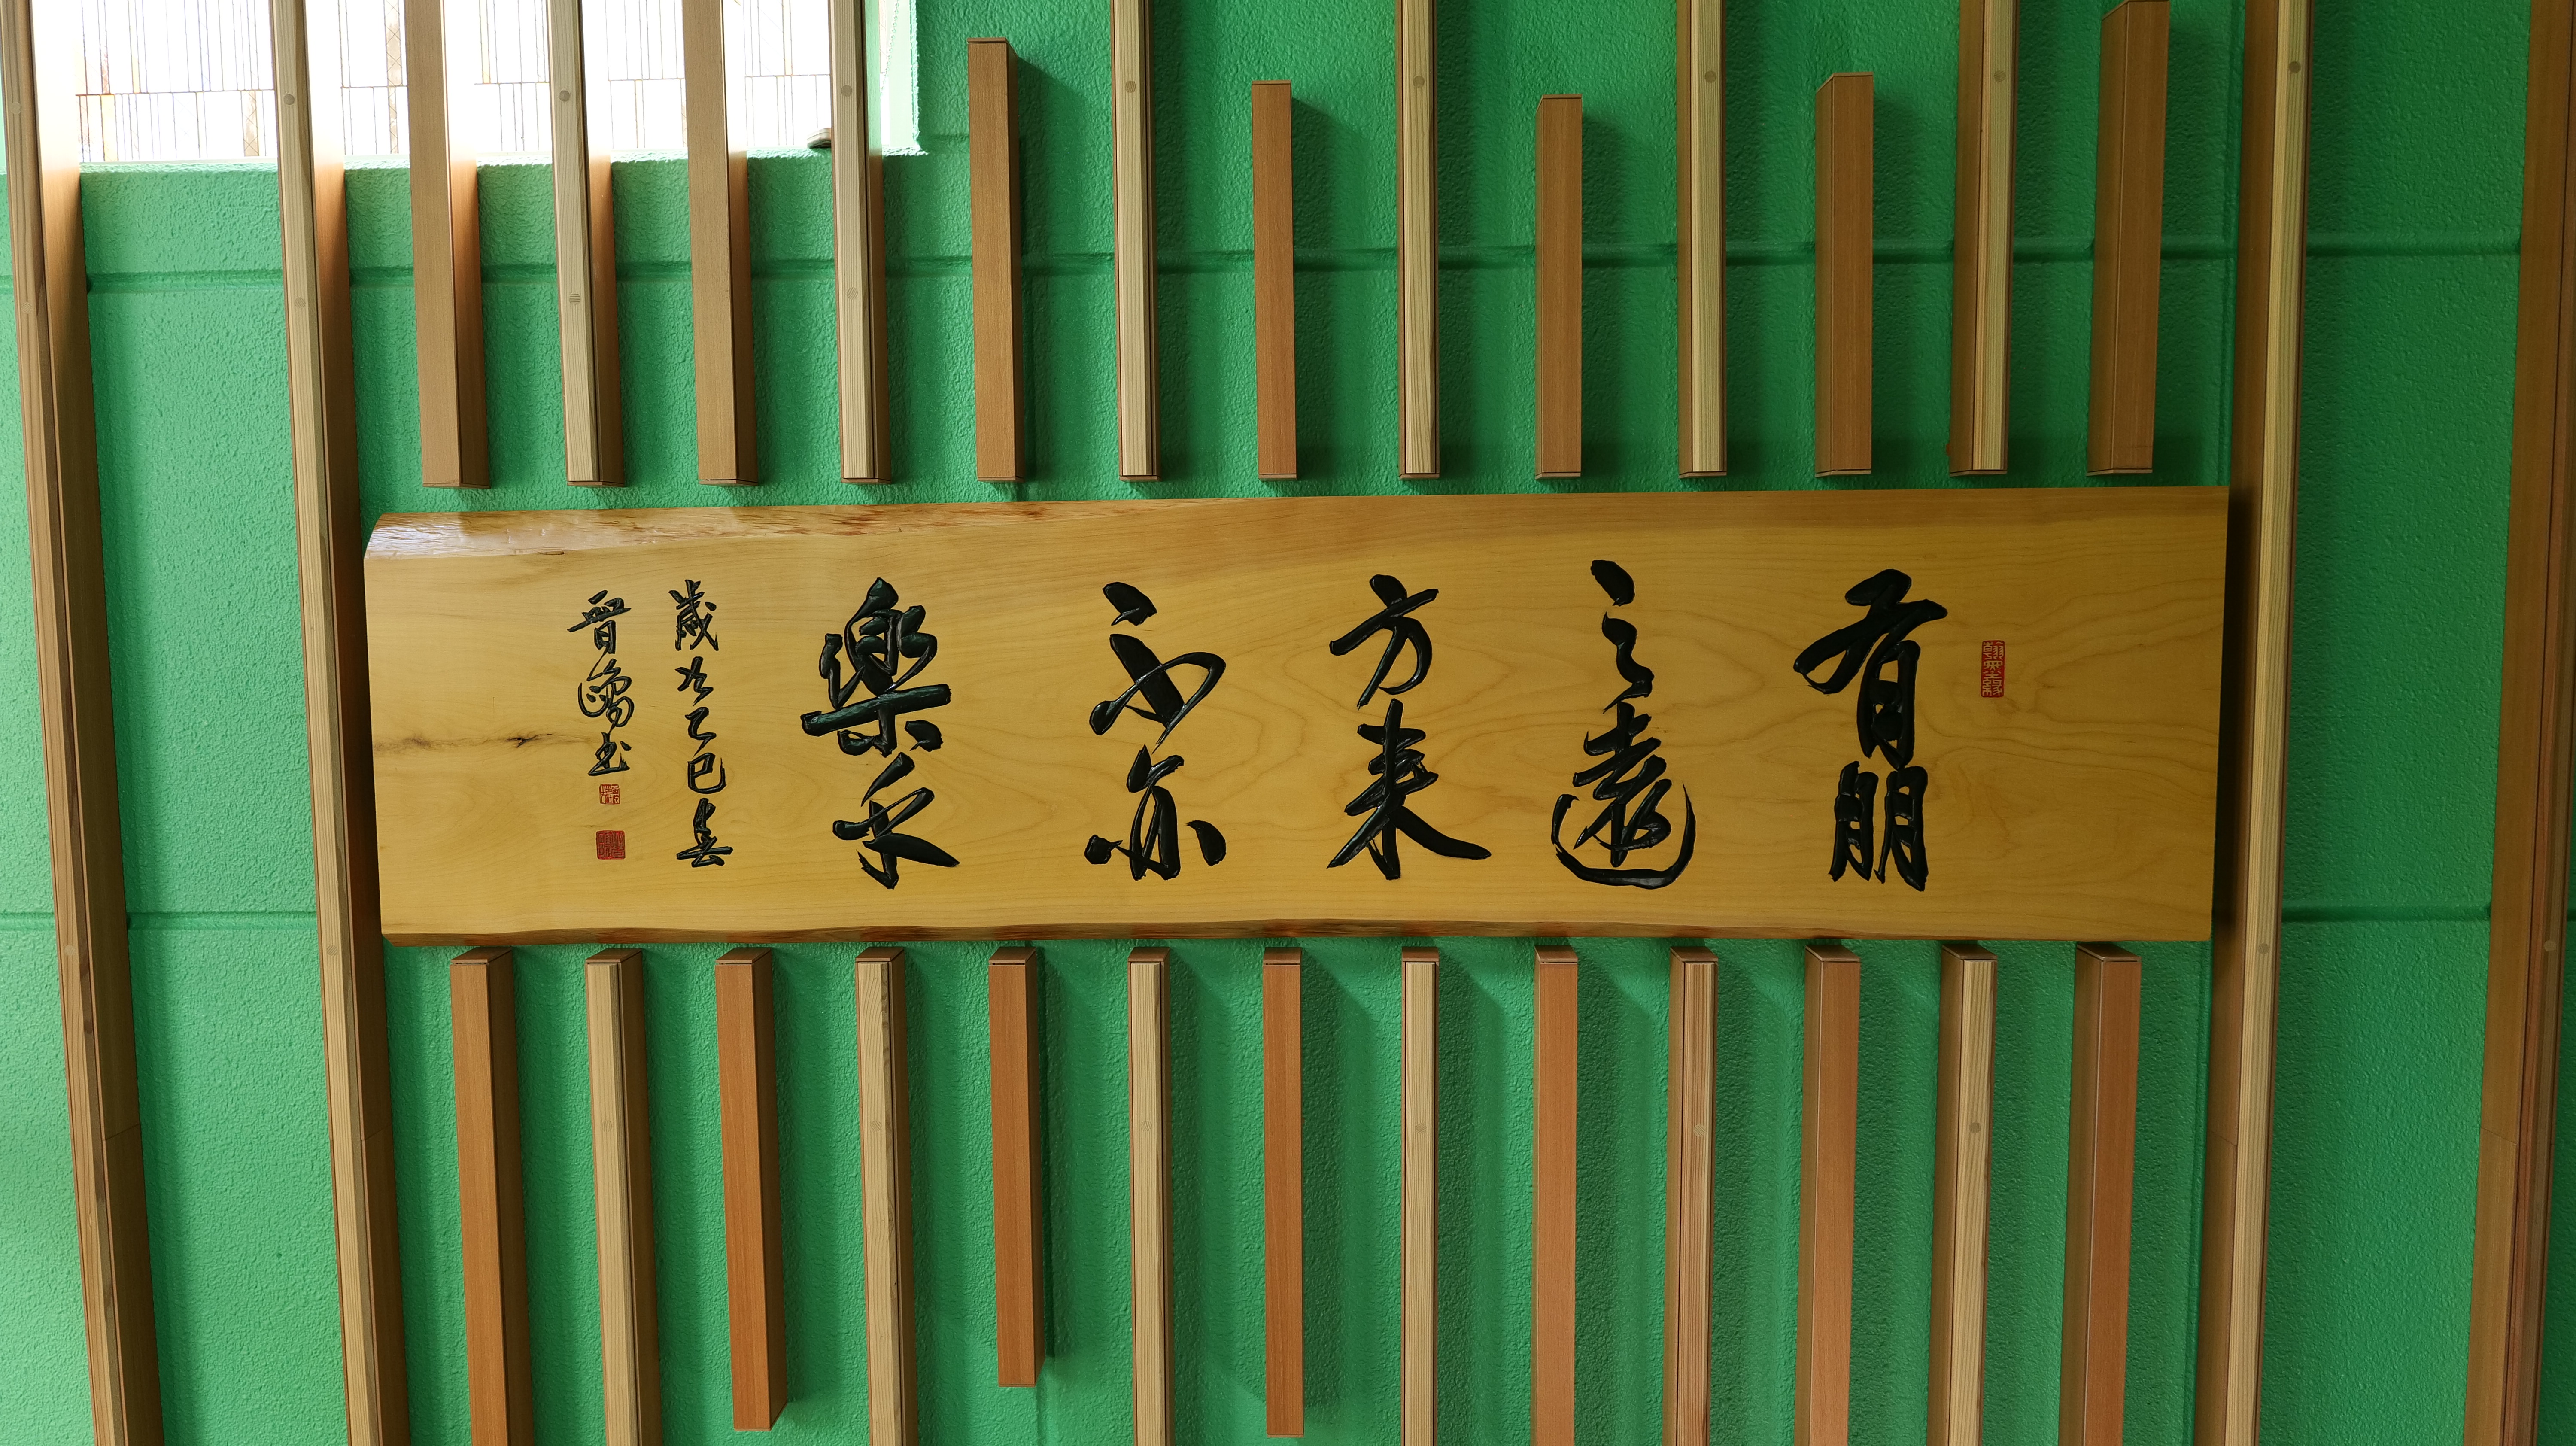 有朋
自遠
方来
不亦
樂乎
歳次乙巳春
晋書